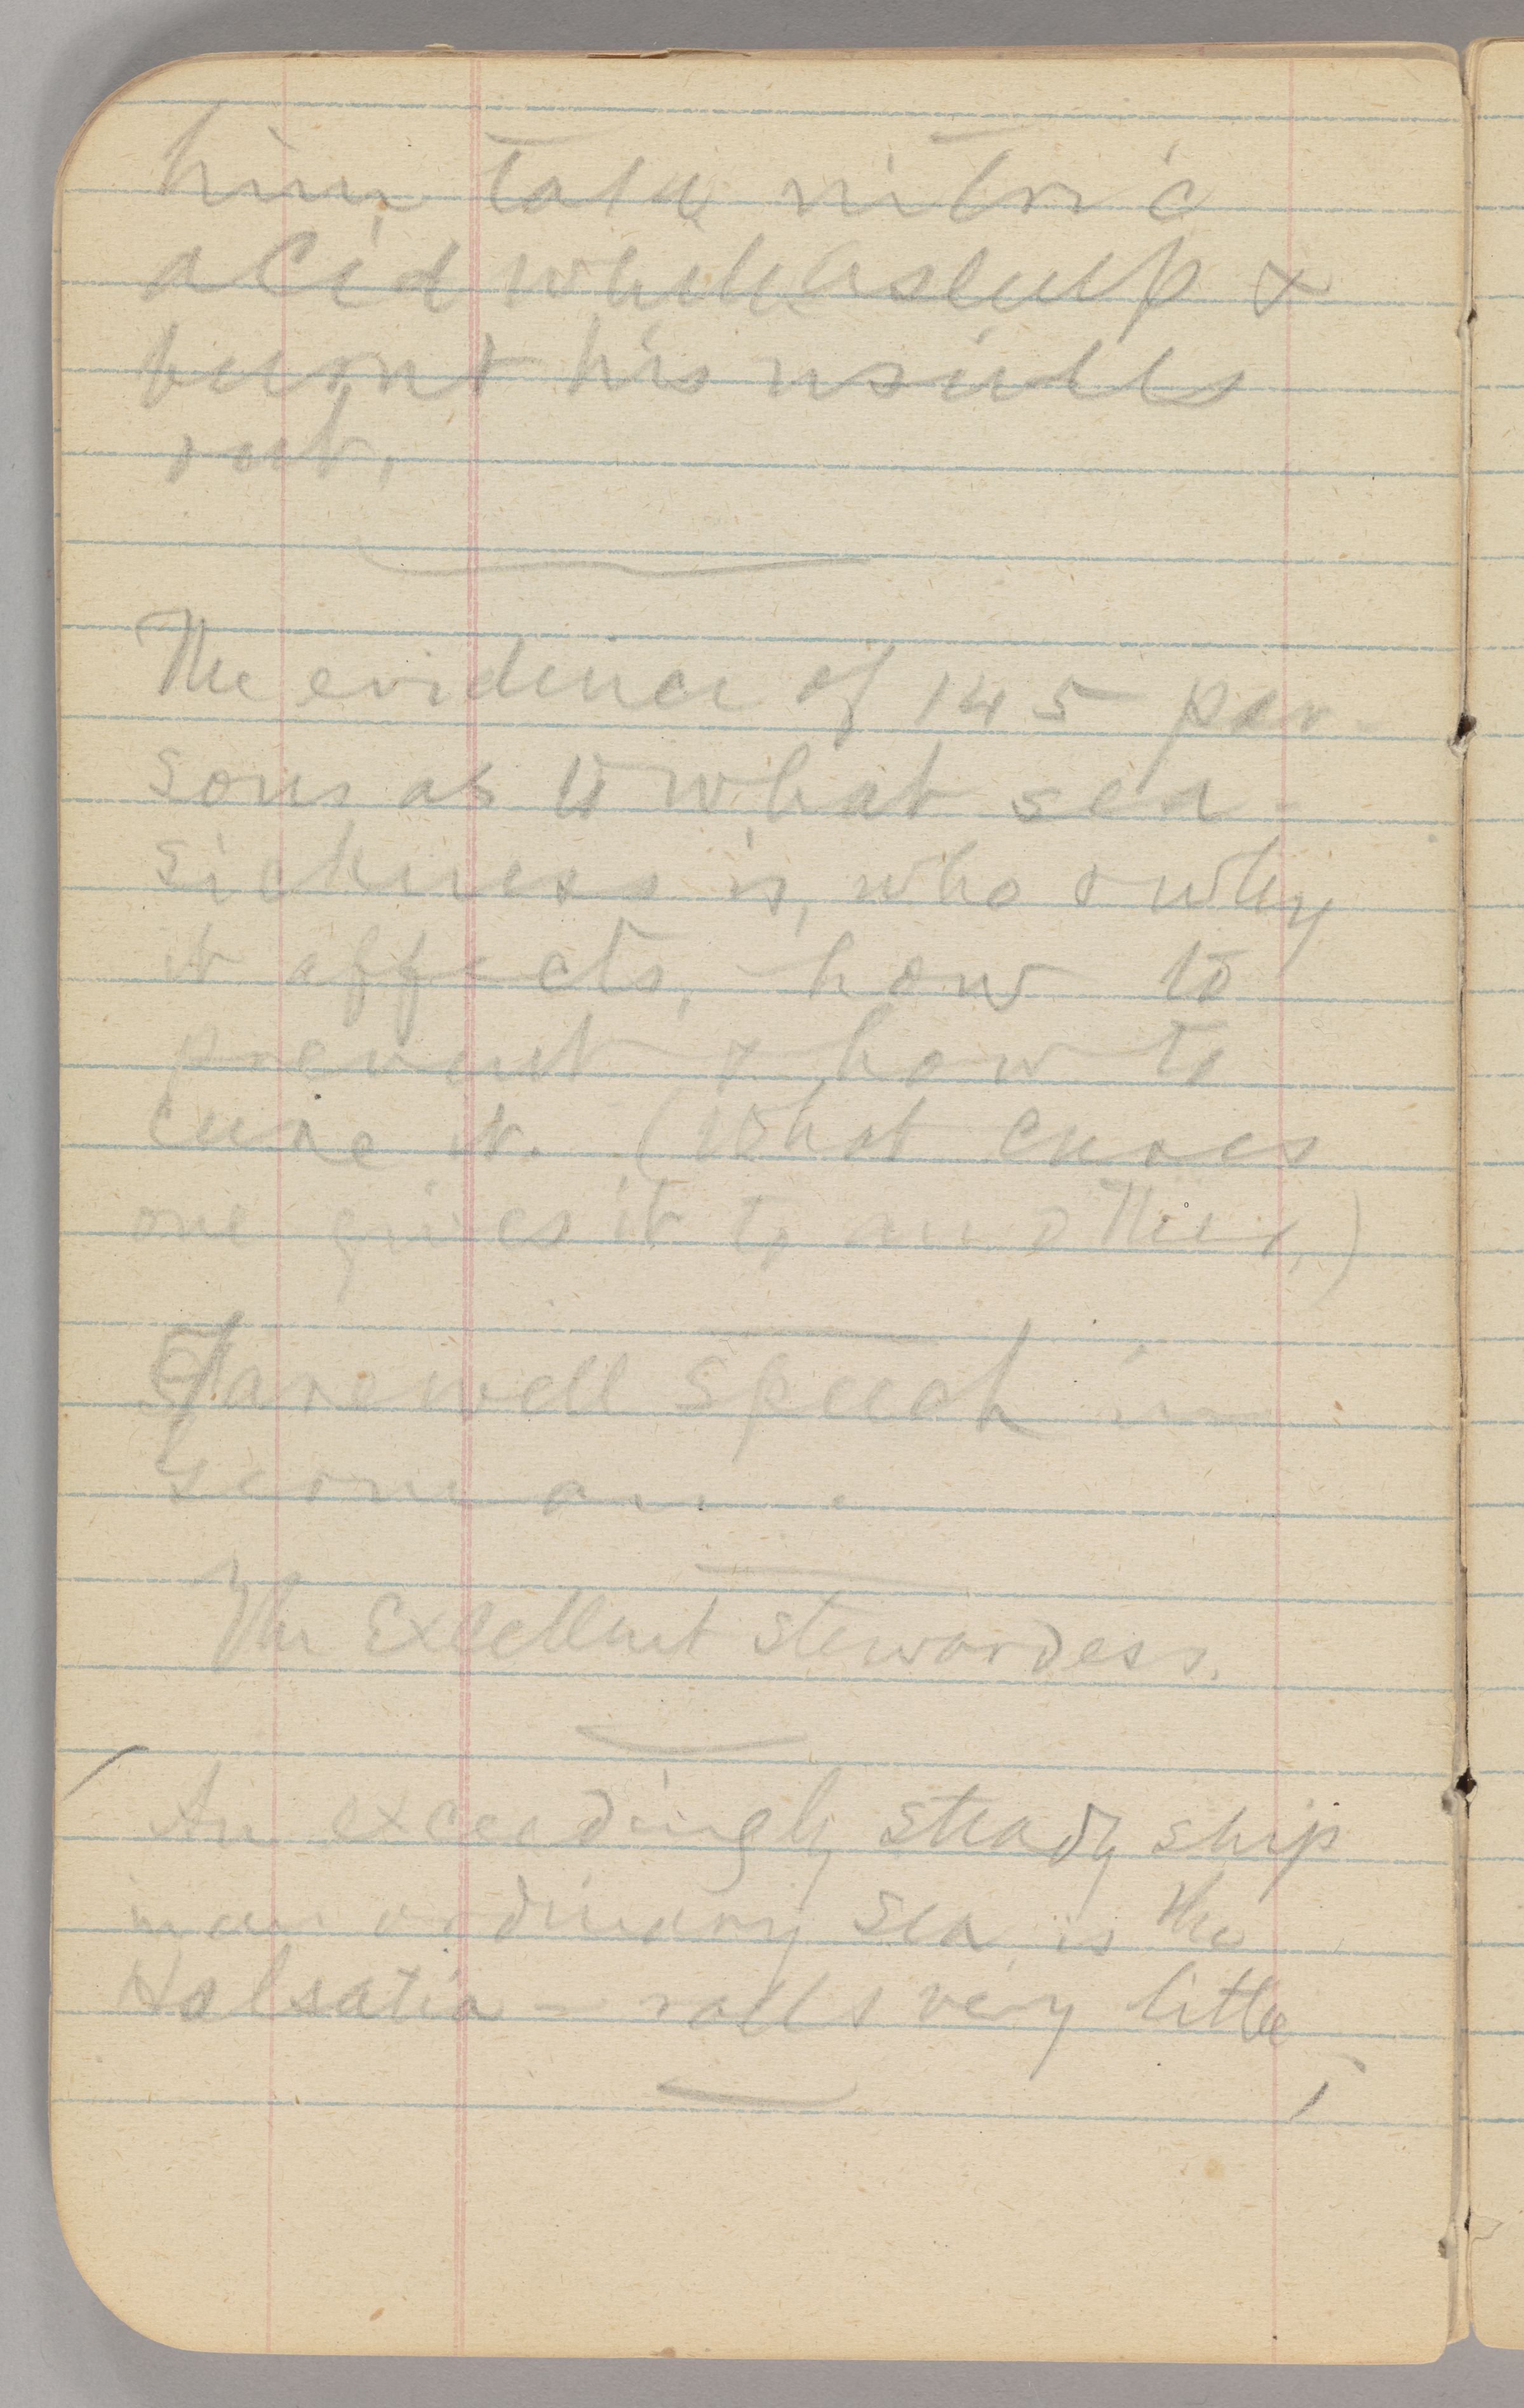 him take nitric
acid while asleep &
burnt his insides
out.
The evidence of 145 per-
sons as to what sea-
sickness is, who & why
it affects, how to
prevent & how to
cure it. (What cures
one gives it to another.)
Farewell speech in
German.
The Excellent stewardess.
An exceedingly steady ship
in an ordinary sea is the
Holsatia – rolls very little